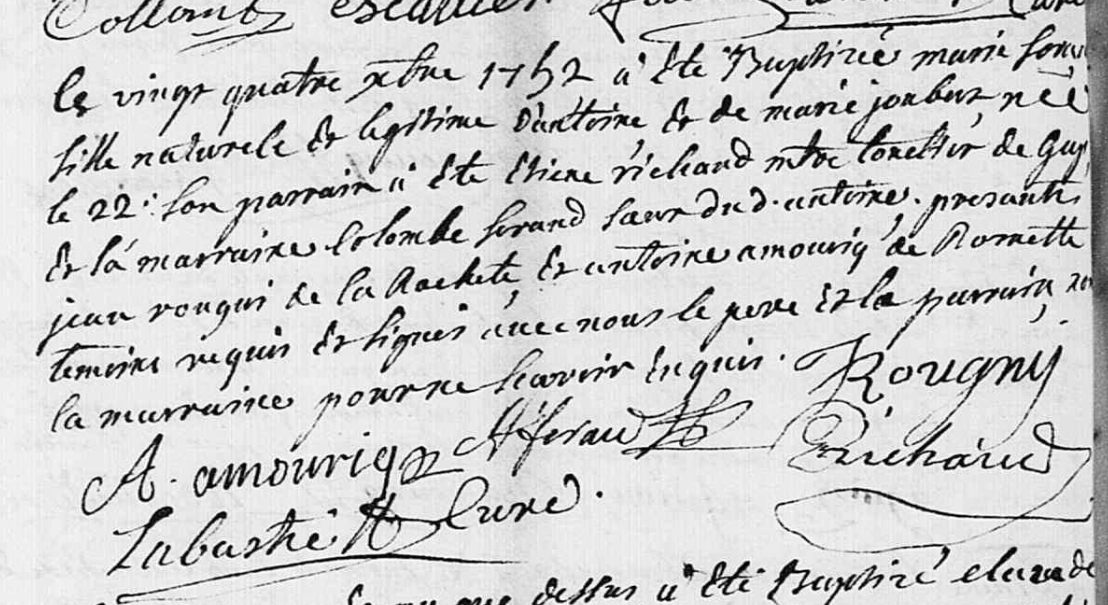 Collomb escallier
le vingt quatre xbre 1752 a été Baptizée marie
fille naturele et legitime d'antoine et de marie joubert née
le 22. son parrain a été Etiene richaud mtre de Gap
et la marraine Colombe feraud sœur dud. antoine. presants
jean rougni de la Rochete et antoine amouriq de Romette
temoins requis et signés avec nous le pere et le parrain
la marraine pour ne scavoir enquis. Rougny
A. amouriq A feraud Richaud
Labastie Curé.
dessus a été Baptizé